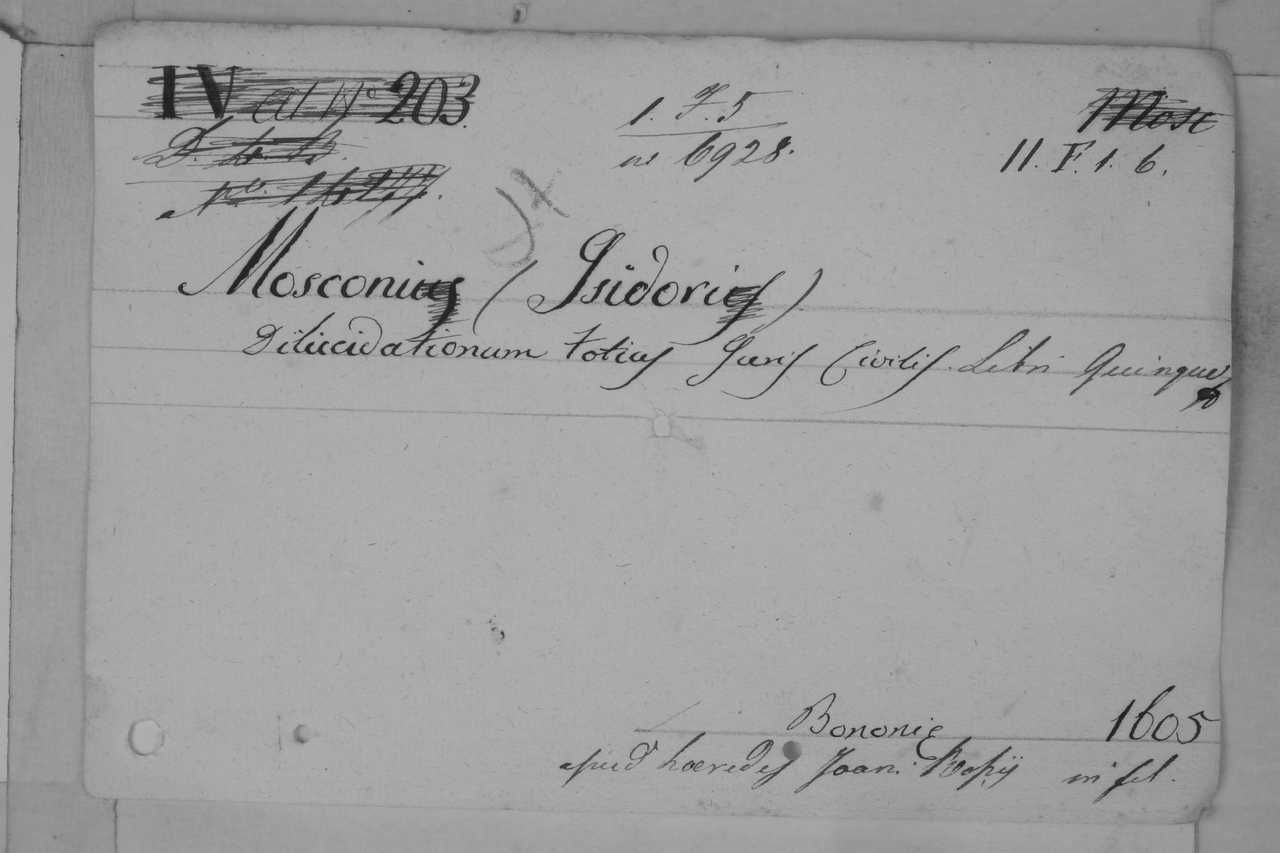 IV 203
1. F. 5
Mosc
no 6928.
II. F. 1. 6.
Mosconius (Isidorius)
Dilucidationum totius Juris Civilis Libri Quinque
Bononie 1605
apud hæredes Joan: Rossÿ in fol.